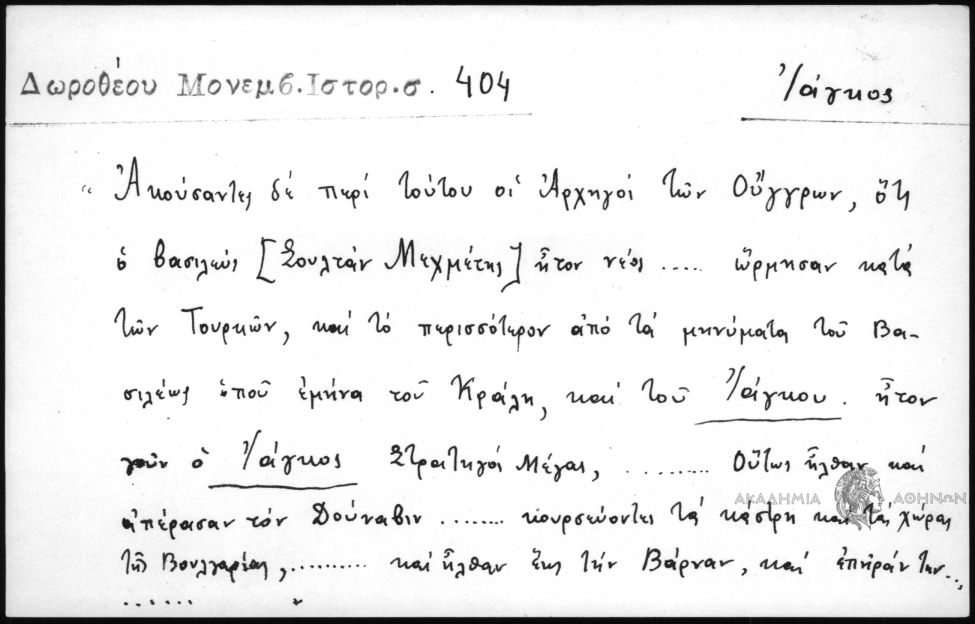 Δωροθέου Μονεμβ. Ιστορ. σ. 404
Ἰάγκος
“ Ἀκούσαντες δέ περί τούτου οἱ Ἀρχηγοί τῶν Οὔγγρων, ὅτι
ὁ βασιλεύς [Σουλτάν Μεχμέτης] ἦτον νέος ..... ὥρμησαν κατά
τῶν Τουρκῶν, καί τό περισσότερον ἀπό τά μηνύματα τοῦ Βα-
σιλέως ὁποῦ ἐμήνα τοῦ Κράλη, καί τοῦ Ἰάγκου. ἦτον
γοῦν ὁ Ἰάγκος Στρατηγός Μέγας, ......... Οὕτως ἦλθαν καί
ἀπέρασαν τόν Δούναβιν ........ κουρσεύοντες τά κάστρη καί τάς χώρας
τῆς Βουλγαρίας, .......... καί ἦλθαν ἕως τήν Βάρναν, καί ἐπῆράν την ..,
......
ΑΚΑΔΗΜΙΑ ΑΘΗΝΩΝ